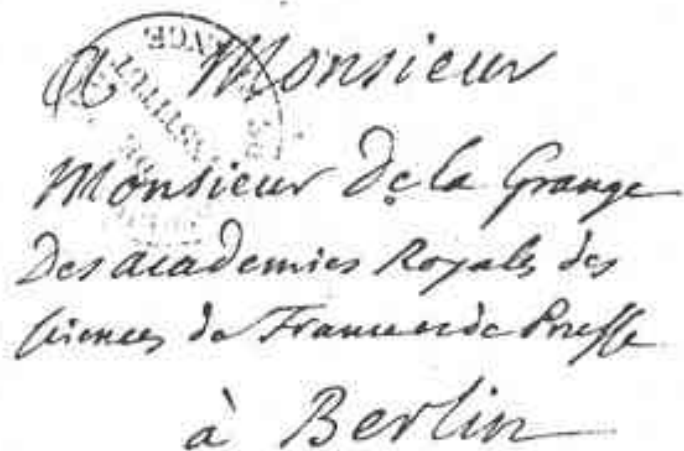 a Monsieur
Monsieur De la Grange
Des academies Royales des
sciences de France et de Prusse
à Berlin
INSTITUT